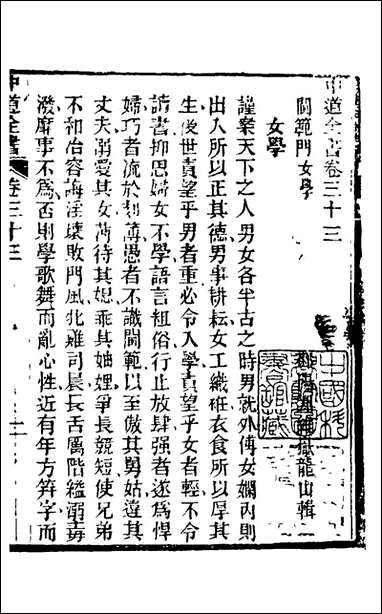 中道全書卷三十三
嶽龍山輯
閫範門女學
女學
謹案天下之人男女各半古之時男就外傅女嫻內則
出入所以正其德男事耕耘女工織紝衣食所以厚其
生後世責望乎男者重必令入學責望乎女者輕不令
讀書抑思婦女不學語言粗俗行止放肆强者遂為悍
婦巧者流於刻薄愚者不識閫範以至傲其舅姑違其
丈夫溺愛其女苛待其媳乖其妯娌爭長競短使兄弟
不和冶容誨淫壞敗門風牝雞司晨長舌厲階繼溺毒
潑靡事不為否則學歌舞而亂心性近有年方笄字而
中道全書
卷三十三
一